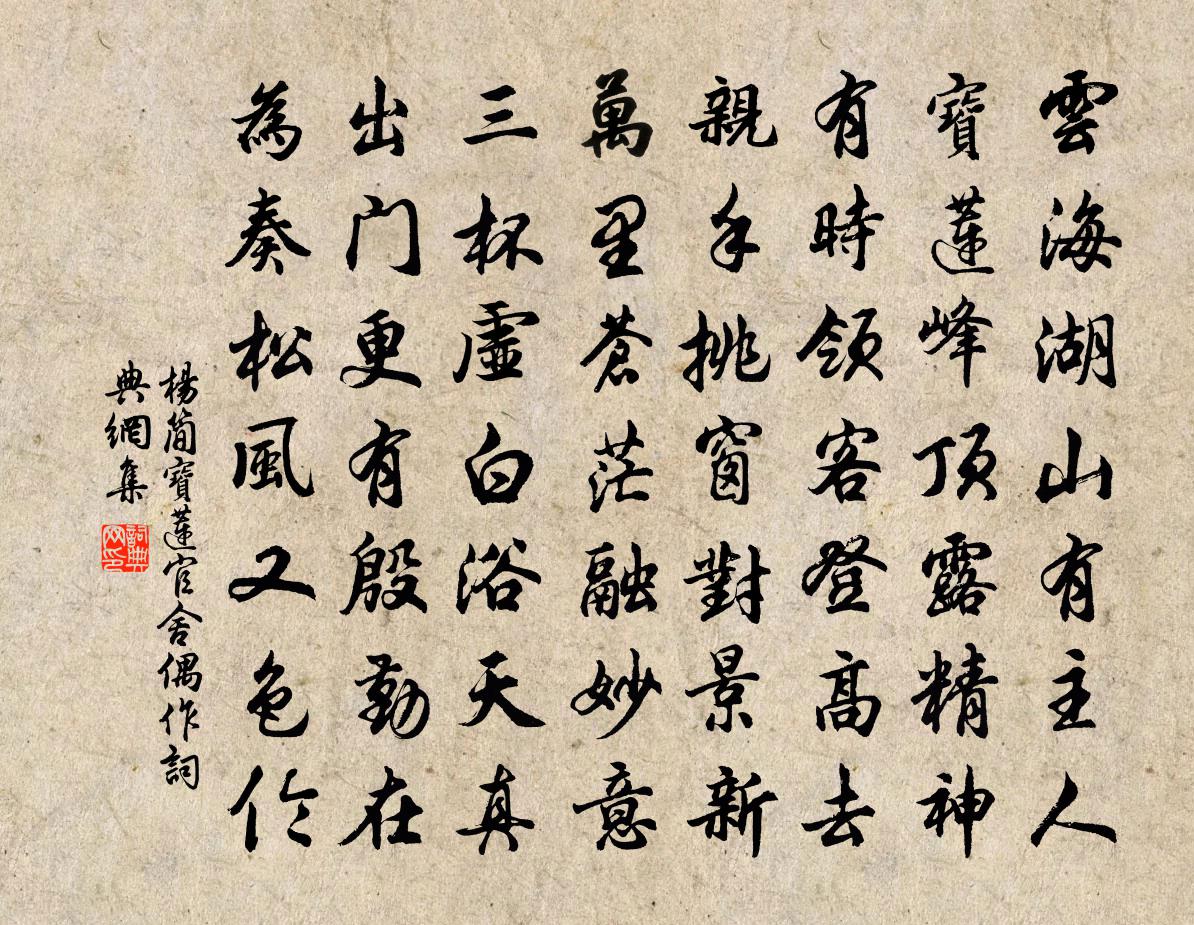 雲海湖山有主人
寶蓮峰頂露精神
有時領客登高去
親手挑窗對景新
萬里蒼茫融妙意
三杯虛白浴天真
出门更有殷勤在
為奏松風又色伶
楊簡寶蓮官舍偶作詞
典網集
詞典网印